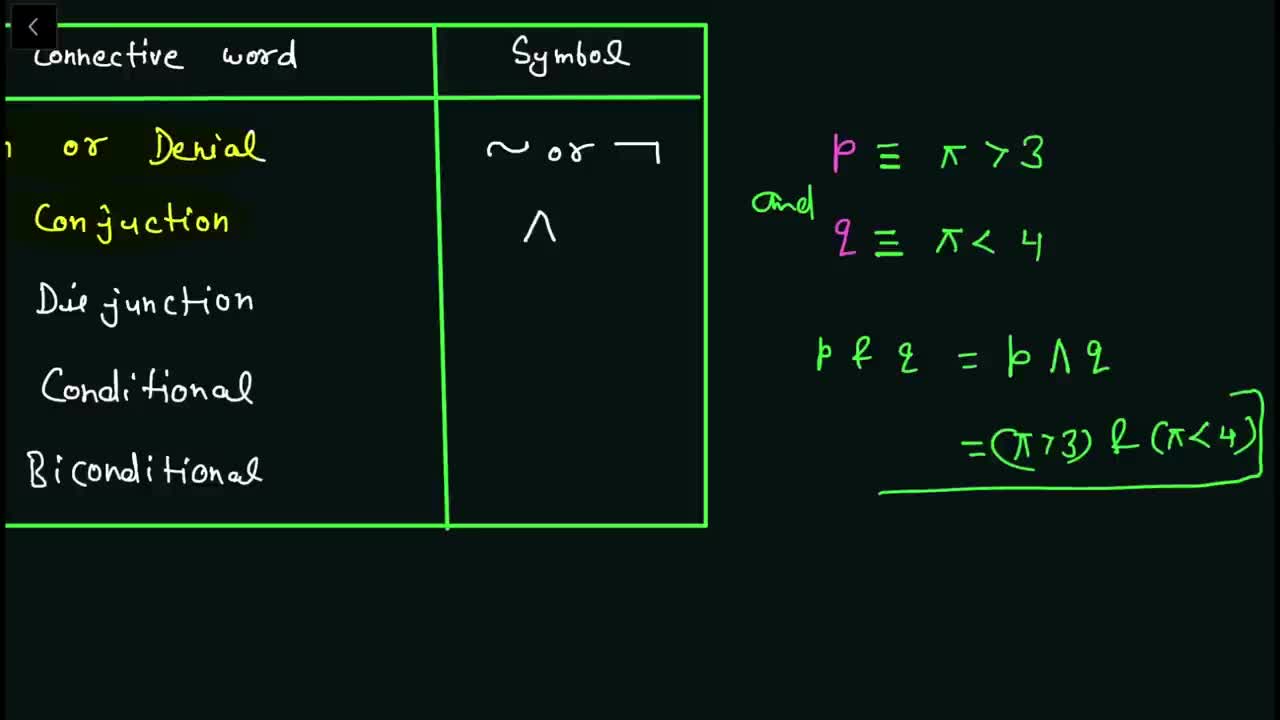 Connective word Symbol
or Denial ~ or ¬
Conjuction ∧
Disjunction
Conditional
Biconditional
p ≡ π > 3
and
q ≡ π < 4
p & q = p ∧ q
= (π > 3) & (π < 4)